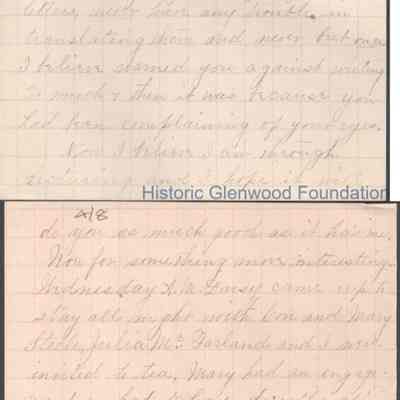 letters, never have any trouble in
translating them and never but once
I believe warned you against writing
to much & then it was because you
had been complaining of your eyes.
Now I believe I am through
and I hope it will
Historic Glenwood Foundation
4/8
do you as much good as it has me.
Now for something more interesting.
Wednesday A. M. Daisy came up to
stay all night with Con and Mary
Steele, Julia McFarland and I were
invited to tea. Mary had an engage-